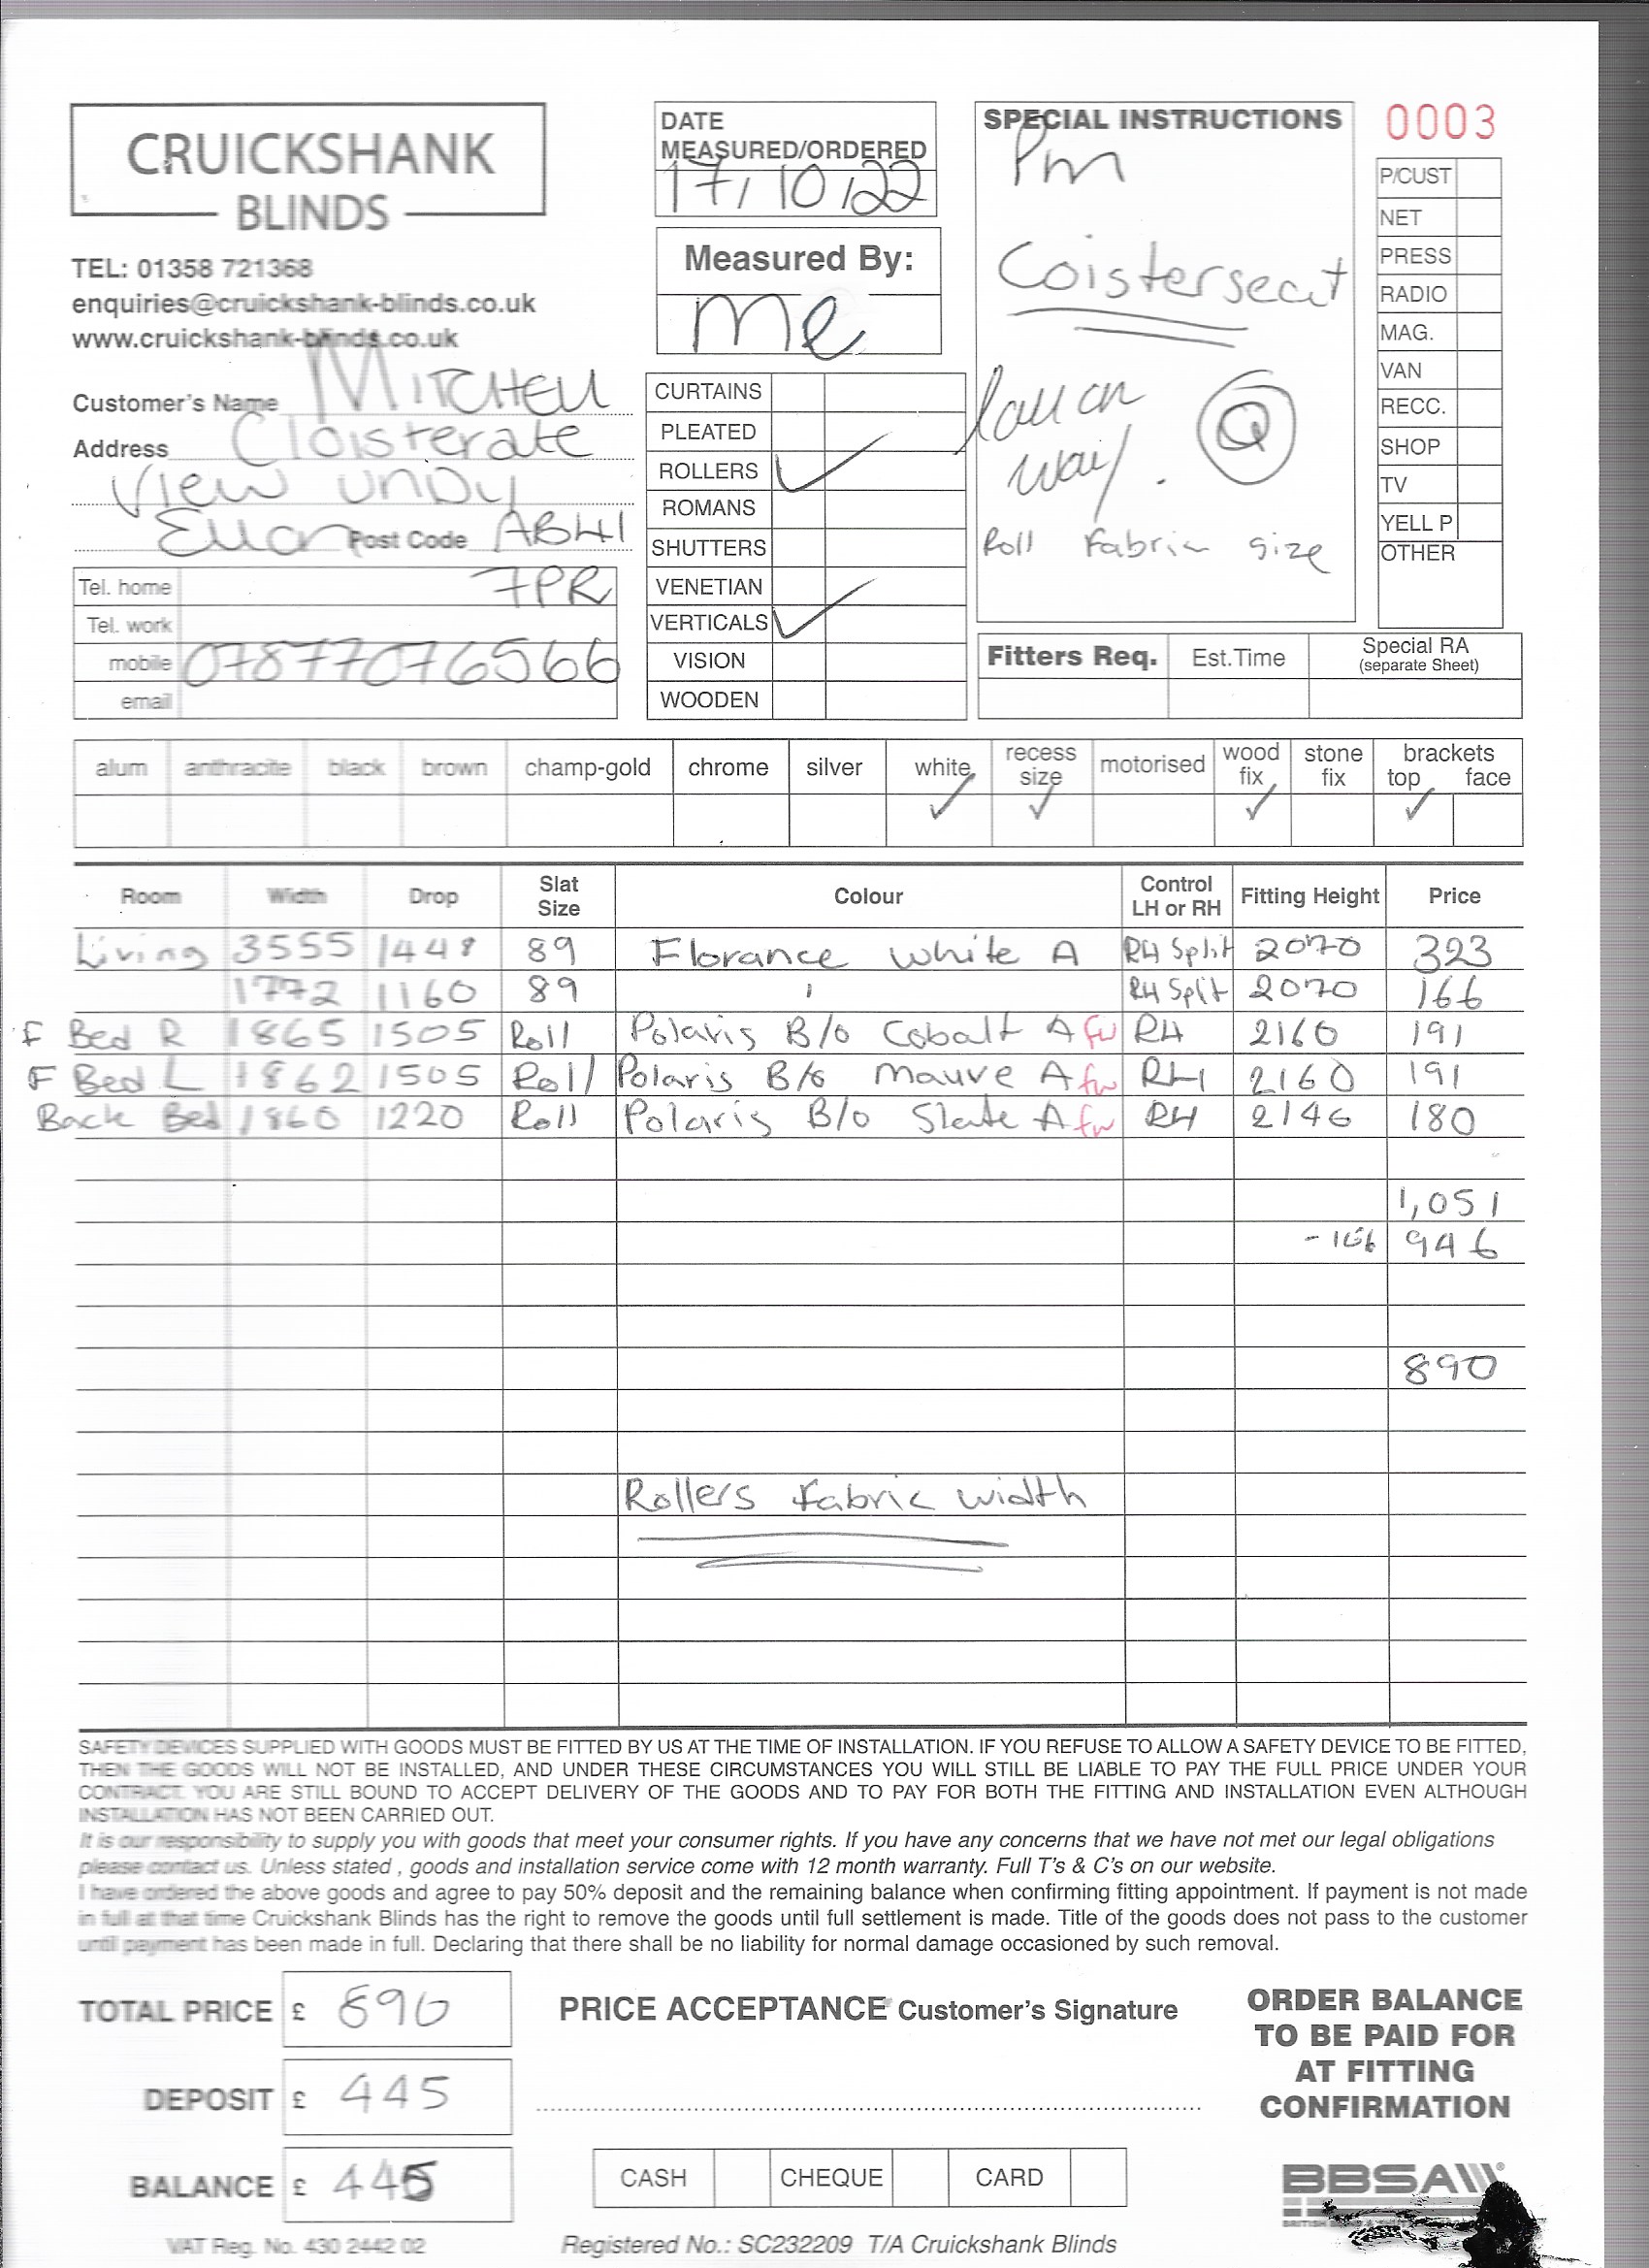 CRUICKSHANK
BLINDS
TEL: 01358 721368
enquiries@cruickshank-blinds.co.uk
www.cruickshank-blinds.co.uk
Customer's Name MITCHELL
Address Cloisterate
View UNDY
Ellon Post Code AB41
Tel. home 7PR
Tel. work
mobile 07877076566
email
DATE
MEASURED/ORDERED
17/10/22
Measured By:
me
CURTAINS
PLEATED
ROLLERS ✓
ROMANS
SHUTTERS
VENETIAN
VERTICALS ✓
VISION
WOODEN
SPECIAL INSTRUCTIONS
Pm
Coisterseat
Call on
way. @
Roll Fabric size
0003
P/CUST
NET
PRESS
RADIO
MAG.
VAN
RECC.
SHOP
TV
YELL P
OTHER
Fitters Req. Est.Time Special RA
(separate Sheet)
alum anthracite black brown champ-gold chrome silver white recess size motorised wood fix stone fix brackets top face
✓ ✓ ✓ ✓
Room Width Drop Slat Size Colour Control LH or RH Fitting Height Price
Living 3555 1448 89 Florance white A RH Split 2070 323
1772 1160 89 RH Split 2070 166
F Bed R 1865 1505 Roll Polaris B/o Cobalt A fw RH 2160 191
F Bed L 1862 1505 Roll Polaris B/o Mauve A fw RH 2160 191
Back Bed 1860 1220 Roll Polaris B/o Slate A fw RH 2146 180
1,051
946
890
Rollers fabric width
SAFETY DEVICES SUPPLIED WITH GOODS MUST BE FITTED BY US AT THE TIME OF INSTALLATION. IF YOU REFUSE TO ALLOW A SAFETY DEVICE TO BE FITTED,
THEN THE GOODS WILL NOT BE INSTALLED, AND UNDER THESE CIRCUMSTANCES YOU WILL STILL BE LIABLE TO PAY THE FULL PRICE UNDER YOUR
CONTRACT. YOU ARE STILL BOUND TO ACCEPT DELIVERY OF THE GOODS AND TO PAY FOR BOTH THE FITTING AND INSTALLATION EVEN ALTHOUGH
INSTALLATION HAS NOT BEEN CARRIED OUT.
It is our responsibility to supply you with goods that meet your consumer rights. If you have any concerns that we have not met our legal obligations
please contact us. Unless stated , goods and installation service come with 12 month warranty. Full T's & C's on our website.
I have ordered the above goods and agree to pay 50% deposit and the remaining balance when confirming fitting appointment. If payment is not made
in full at that time Cruickshank Blinds has the right to remove the goods until full settlement is made. Title of the goods does not pass to the customer
until payment has been made in full. Declaring that there shall be no liability for normal damage occasioned by such removal.
TOTAL PRICE £ 890
DEPOSIT £ 445
BALANCE £ 445
PRICE ACCEPTANCE Customer's Signature
CASH CHEQUE CARD
ORDER BALANCE
TO BE PAID FOR
AT FITTING
CONFIRMATION
BBSA
VAT Reg. No. 430 2442 02
Registered No.: SC232209 T/A Cruickshank Blinds